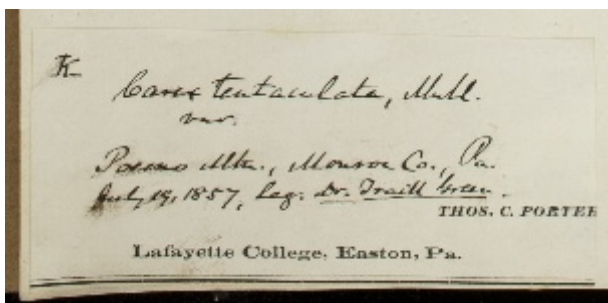 K
Carex tentaculata, Muhl.
var.
Pocono Mtn., Monroe Co., Pa.
July 19, 1857, Leg. Dr. Traill Green.
THOS. C. PORTER
Lafayette College, Easton, Pa.